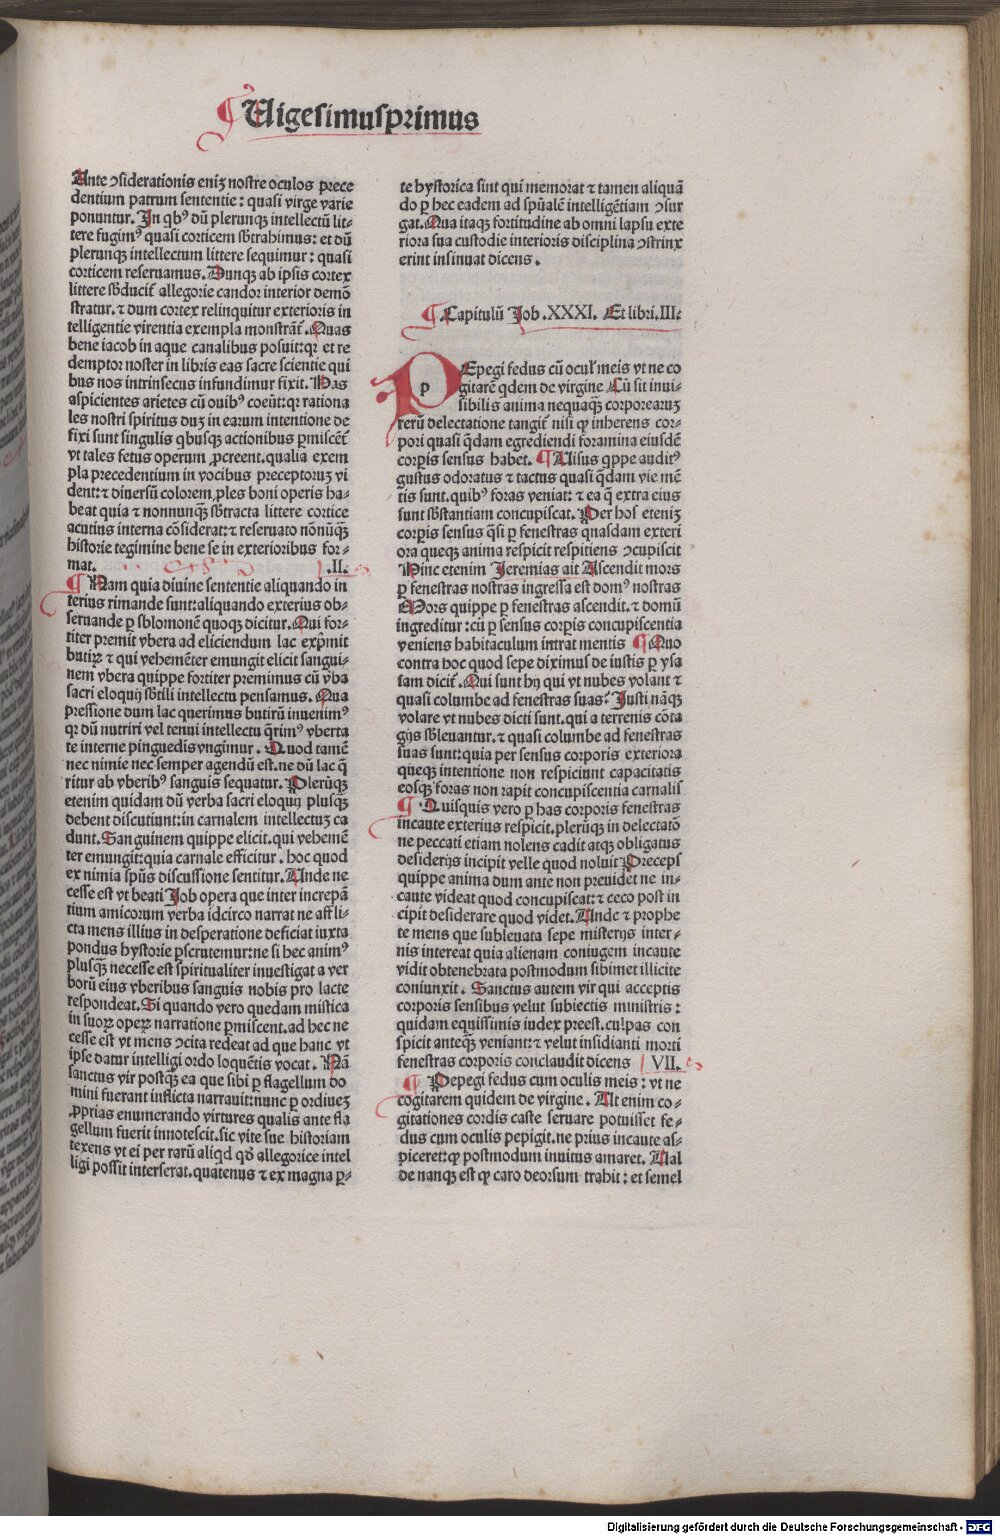 Uigesimusprimus
Ante ↄsiderationis eniꝫ nostre oculos prece
dentium patrum sententie: quasi virge varie
ponuntur. In qbꝰ dū plerunqꝫ intellectū lit⸗
tere fugimꝰ quasi corticem sb̄trahimus: et dū
plerunqꝫ intellectum littere sequimur: quasi
corticem reseruamus. Dunqꝫ ab ipsis cortex
littere sb̄ducit̄ allegorie candor interior demō
stratur. ⁊ dum cortex relinquitur exterioris in
telligentie virentia exempla monstrāt̄. Quas
bene iacob in aque canalibus posuit: qꝛ et re
demptor noster in libris eas sacre scientie qui
bus nos intrinsecus infundimur fixit. Has
aspicientes arietes cū ouibꝰ coeūt: qꝛ rationa
les nostri spiritus duꝫ in earum intentione de
fixi sunt singulis qbusqꝫ actionibus ꝑmiscēt̄
vt tales fetus operum ꝓcreent. qualia exem
pla precedentium in vocibus preceptoruꝫ vi
dent: ⁊ diuersū colorem ꝓles boni operis ha⸗
beat quia ⁊ nonnunqꝫ̄ sb̄tracta littere cortice
acutius interna cōsiderat: ⁊ reseruato nōnūqꝫ̄
historie tegimine bene se in exterioribus for⸗
mat. .II.
¶ Nam quia diuine sententie aliquando in
terius rimande sunt: aliquando exterius ob⸗
seruande ꝑ sb̄lomonē quoqꝫ dicitur. Qui for⸗
titer premit vbera ad eliciendum lac exp̄mit
butiꝝ ⁊ qui vehemēter emungit elicit sangui⸗
nem vbera quippe fortiter premimus cū v̄ba
sacri eloquij sb̄tili intellectu pensamus. Qua
pressione dum lac querimus butirū inuenimꝰ
qꝛ dū nutriri vel tenui intellectu q̄rimꝰ vberta
te interne pinguedis vngimur. Quod tamē
nec nimie nec semper agendū est. ne dū lac q̄
ritur ab vberibꝰ sanguis sequatur. Plerūqꝫ
etenim quidam dū verba sacri eloquij plusqꝫ̄
debent discutiunt: in carnalem intellectuꝫ ca
dunt. Sanguinem quippe elicit. qui vehemē
ter emungit: quia carnale efficitur. hoc quod
ex nimia spūs discussione sentitur. Unde ne
cesse est vt beati Job opera que inter increpā
tium amicorum verba idcirco narrat ne affli⸗
cta mens illius in desperatione deficiat iuxta
pondus hystorie ꝑscrutemur: ne si hec animꝰ
plusqꝫ̄ necesse est spiritualiter inuestigat a ver
borū eius vberibus sanguis nobis pro lacte
respondeat. Si quando vero quedam mistica
in suoꝝ opeꝝ narratione ꝑmiscent. ad hec ne
cesse est vt mens ↄcita redeat ad que hanc vt
ipse datur intelligi ordo loquētis vocat. Nā
sanctus vir postqꝫ̄ ea que sibi ꝑ flagellum do
mini fuerant inflicta narrauit: nunc ꝑ ordineꝫ
ꝓprias enumerando virtures qualis ante fla
gellum fuerit innotescit. sic vite sue historiam
texens vt ei per rarū aliqd qd̄ allegorice intel
ligi possit interserat. quatenus ⁊ ex magna ꝑ⸗
te hystorica sint qui memorat ⁊ tamen aliquā
do ꝑ hec eadem ad sp̄ualē intelligētiam ↄsur
gat. Qua itaqꝫ fortitudine ab omni lapsu exte
riora sua custodie interioris disciplina ↄstrinx
erint insinuat dicens.
¶ Capitulū Job .XXXI. Et libri. III:
PEpegi fedus cū ocul' meis vt ne co
gitarē qdem de virgine Cū sit inui⸗
sibilis anima nequaqꝫ̄ corporearuꝫ
rerū delectatione tangit̄ nisi ꝙ inherens cor⸗
pori quasi q̄dam egrediendi foramina eiusdē
corꝑis sensus habet. ¶ Uisus qppe auditꝰ
gustus odoratus ⁊ tactus quasi q̄dam vie mē
tis sunt. quibꝰ foras veniat: ⁊ ea q̄ extra eius
sunt sb̄stantiam concupiscat. Per hos eteniꝫ
corꝑis sensus q̄si ꝑ fenestras quasdam exteri
ora queqꝫ anima respicit respitiens ↄcupiscit
Hinc etenim Jeremias ait Ascendit mors
ꝑ fenestras nostras ingressa est domꝰ nostras
Mors quippe ꝑ fenestras ascendit. ⁊ domū
ingreditur: cū ꝑ sensus corꝑis concupiscentia
veniens habitaculum intrat mentis ¶ Quo
contra hoc quod sepe diximus de iustis ꝑ ysa
iam dicit̄. Qui sunt hij qui vt nubes volant ⁊
quasi columbe ad fenestras suas? Justi nāqꝫ
volare vt nubes dicti sunt. qui a terrenis cōta
gijs sb̄leuantur. ⁊ quasi columbe ad fenestras
suas sunt: quia per sensus corporis exteriora
queqꝫ intentione non respiciunt capacitatis
eosqꝫ foras non rapit concupiscentia carnalis
¶ Quisquis vero ꝑ has corporis fenestras
incaute exterius respicit. plerūqꝫ in delectatō
ne peccati etiam nolens cadit atqꝫ obligatus
desiderijs incipit velle quod noluit Preceps
quippe anima dum ante non preuidet ne in⸗
caute videat quod concupiscat: ⁊ ceco post in
cipit desiderare quod videt. Unde ⁊ prophe
te mens que subleuata sepe misterijs inter⸗
nis intereat quia alienam coniugem incaute
vidit obtenebrata postmodum sibimet illicite
coniunxit. Sanctus autem vir qui acceptis
corporis sensibus velut subiectis ministris:
quidam equissimis iudex preest. culpas con
spicit anteqꝫ̄ veniant: ⁊ velut insidianti morti
fenestras corporis conclaudit dicens VII.
¶ Pepegi fedus cum oculis meis: vt ne
cogitarem quidem de virgine. Ut enim co⸗
gitationes cordis caste seruare potuisset fe⸗
dus cum oculis pepigit. ne prius incaute as⸗
piceret: ꝙ postmodum inuitus amaret. Ual
de nanqꝫ est ꝙ caro deorsum trahit: et semel
Digitalisierung gefördert durch die Deutsche Forschungsgemeinschaft - DFG